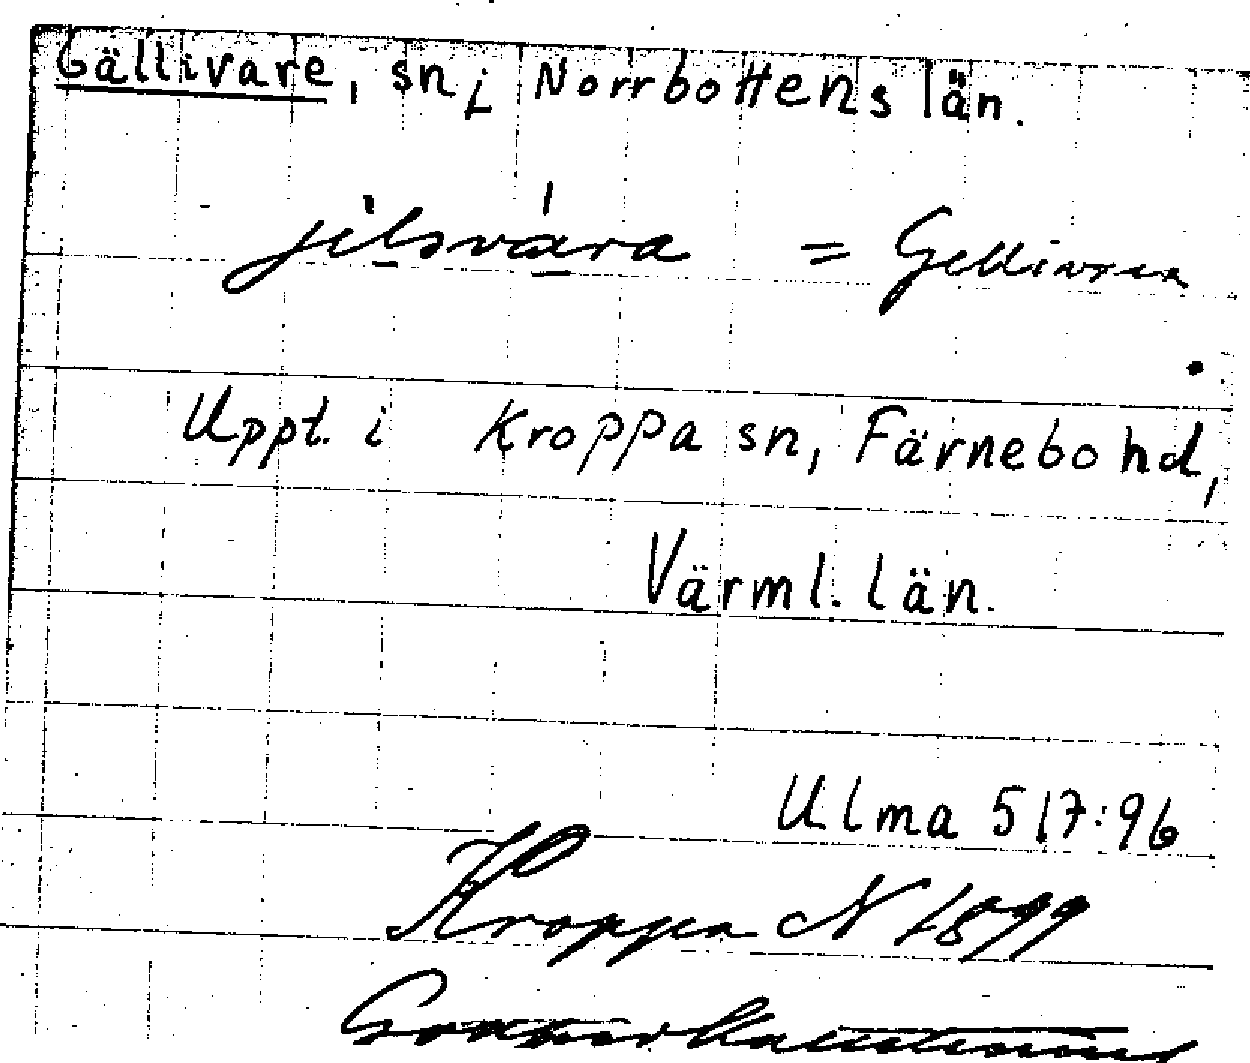 Gällivare, sn i Norrbottens län.
jilsvára = Gellivara
Uppt. i Kroppa sn, Färnebo hd,
Värml. län.
Ulma 517:96
Kroppa N 1899